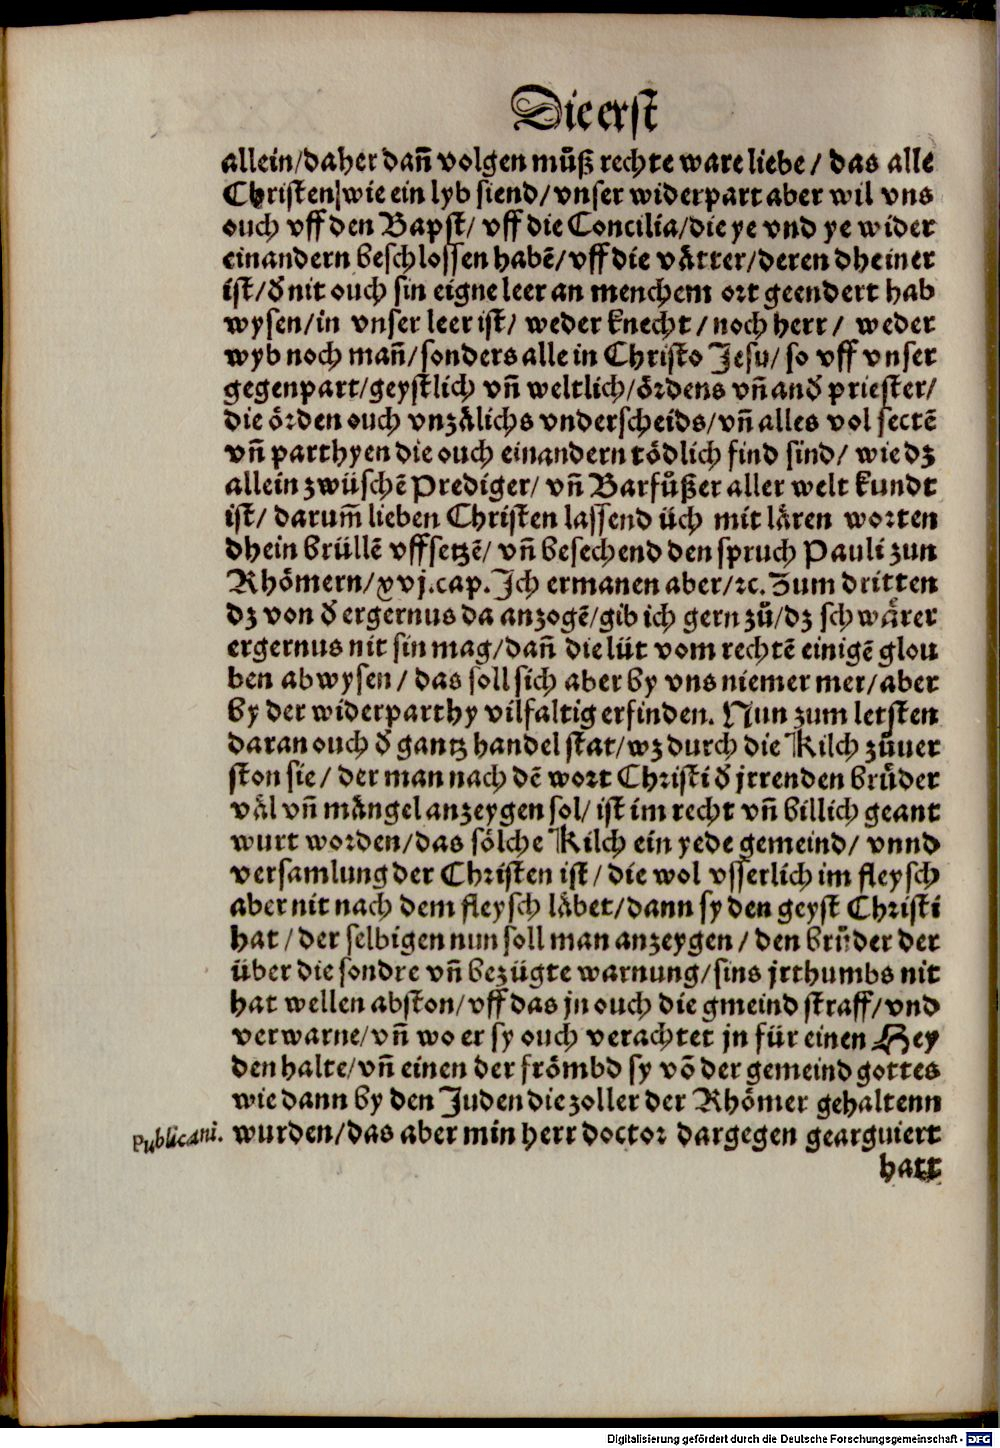 Die erst
allein/daher dañ volgen můß rechte ware liebe/ das alle
Christen/wie ein lyb siend/vnser widerpart aber wil vns
ouch vff den Bapst/ vff die Concilia/die ye vnd ye wider
einandern beschlossen habē/vff die våtter/deren dheiner
ist/ď nit ouch sin eigne leer an menchem ort geendert hab
wysen/in vnser leer ist/ weder knecht/noch herr/ weder
wyb noch mañ/sonders alle in Christo Jesu/ so vff vnser
gegenpart/geystlich vñ weltlich/ördens vñ anď priester/
die örden ouch vnzålichs vnderscheids/vñ alles vol sectē
vñ parthyen die ouch einandern tödlich find sind/ wie dz
allein zwüschē Prediger/ vñ Barfůßer aller welt kundt
ist/ darum̃ lieben Christen lassend üch mit lären worten
dhein brüllē vffsetzē/ vñ besechend den spruch Pauli zun
Rhömern/xvj.cap. Ich ermanen aber/ꝛc. Zum dritten
dz von ď ergernus da anzogē/gib ich gern zů/dz schwårer
ergernus nit sin mag/dañ die lüt vom rechtē einigē glou
ben abwysen/ das soll sich aber by vns niemer mer/aber
by der widerparthy vilfaltig erfinden. Nun zum letsten
daran ouch ď gantz handel stat/wz durch die Kilch zůuer
ston sie/ der man nach dē wort Christi ď jrrenden brůder
väl vñ mängel anzeygen sol/ ist im recht vñ billich geant
wurt worden/das sölche Kilch ein yede gemeind/ vnnd
versamlung der Christen ist/ die wol vsserlich im fleysch
aber nit nach dem fleysch läbet/dann sy den geyst Christi
hat/der selbigen nun soll man anzeygen/den brůder der
über die sondre vñ bezügte warnung/sins jrthumbs nit
hat wellen abston/vff das jn ouch die gmeind straff/vnd
verwarne/vñ wo er sy ouch verachtet jn für einen Hey
den halte/vñ einen der frömbd sy vō der gemeind gottes
wie dann by den Juden die zoller der Rhömer gehaltenn
Publicani. wurden/das aber min herr doctor dargegen gearguiert
hatt
Digitalisierung gefördert durch die Deutsche Forschungsgemeinschaft - DFG